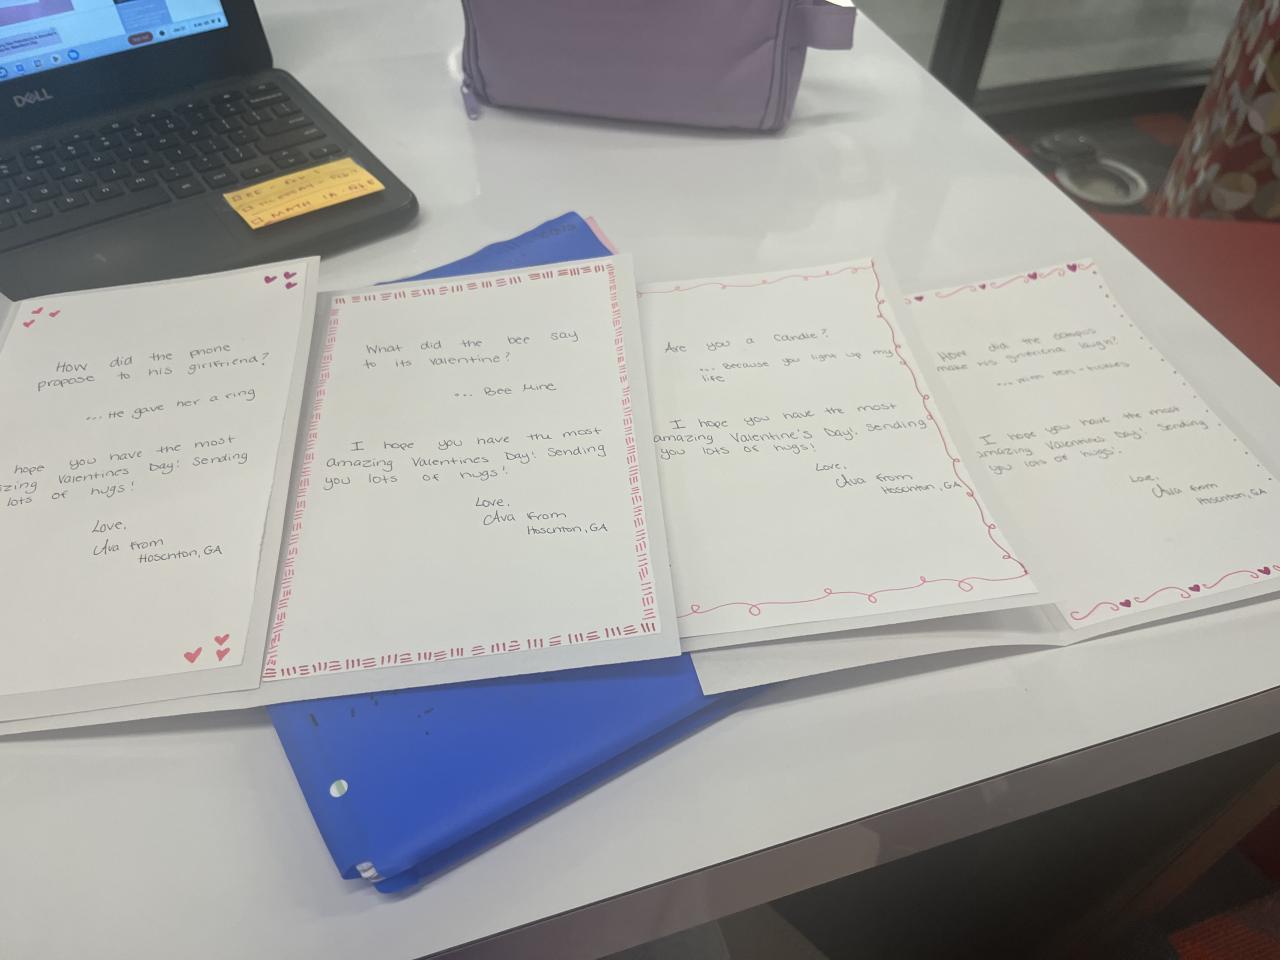 DELL
MATH IA
How did the phone
propose to his girlfriend?
... He gave her a ring
hope you have the most
zing Valentines Day! Sending
lots of hugs!
Love,
Ava from
Hoschton, GA
What did the bee say
to its valentine?
... Bee Mine
I hope you have the most
amazing Valentines Day! Sending
you lots of hugs!
Love,
Ava from
Hoschton, GA
Are you a candle?
... Because you light up my
life
I hope you have the most
amazing Valentine's Day! Sending
you lots of hugs!
Love,
Ava from
Hoschton, GA
How did the octopus
make his girlfriend laugh?
... with ten-tickles
I hope you have the most
amazing Valentines Day! Sending
you lots of hugs!
Love,
Ava from
Hoschton, GA